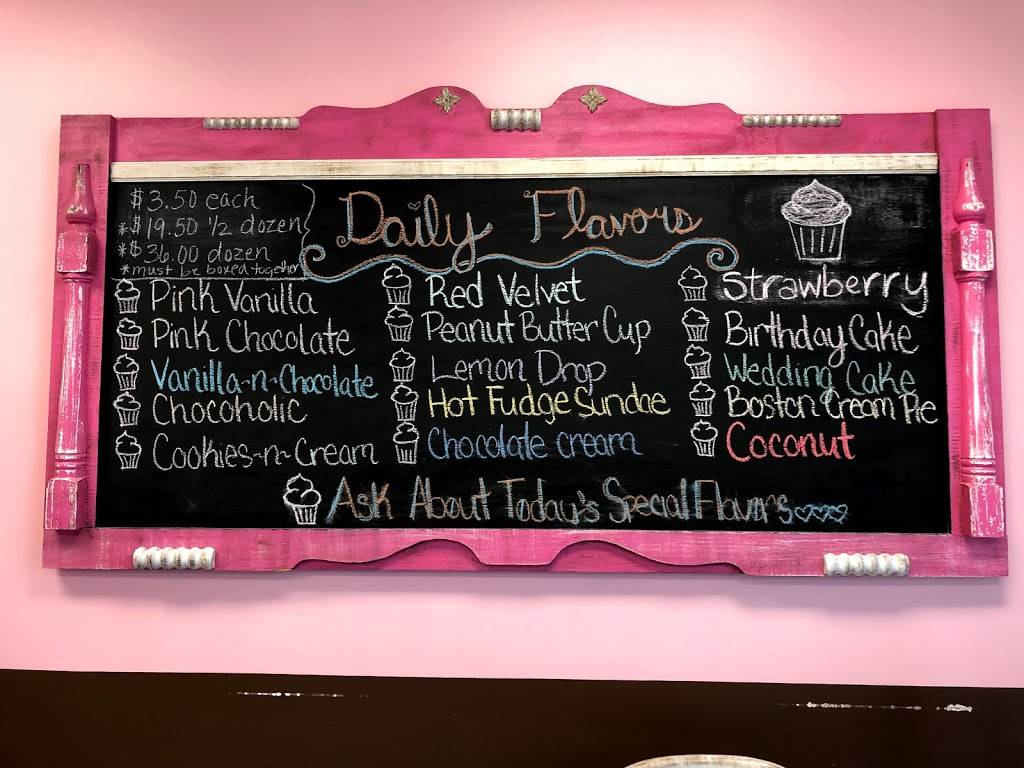 $3.50 each
*$19.50 1/2 dozen
*$36.00 dozen
*must be boxed together
Daily Flavors
Pink Vanilla
Pink Chocolate
Vanilla-n-Chocolate
Chocoholic
Cookies-n-Cream
Red Velvet
Peanut Butter Cup
Lemon Drop
Hot Fudge Sundae
Chocolate cream
Strawberry
Birthday Cake
Wedding Cake
Boston Cream Pie
Coconut
Ask About Today's Special Flavors